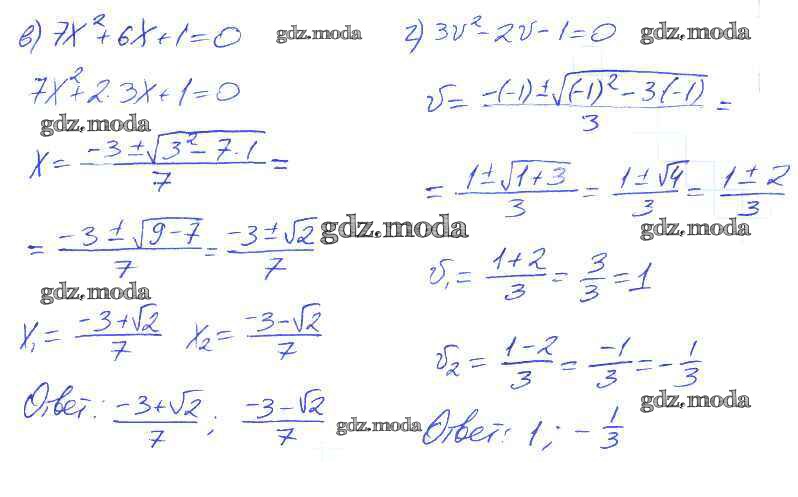 в) 7x² + 6x + 1 = 0 gdz.moda
7x² + 2 · 3x + 1 = 0
gdz.moda
x = (-3 ± √(3² - 7 · 1))/7 =
= (-3 ± √(9 - 7))/7 = (-3 ± √2)/7 gdz.moda
gdz.moda
x₁ = (-3 + √2)/7 x₂ = (-3 - √2)/7
Ответ: (-3 + √2)/7 ; (-3 - √2)/7 gdz.moda
г) 3v² - 2v - 1 = 0 gdz.moda
v = (-(-1) ± √((-1)² - 3(-1)))/3 =
= (1 ± √(1 + 3))/3 = (1 ± √4)/3 = (1 ± 2)/3
gdz.moda
v₁ = (1 + 2)/3 = 3/3 = 1
v₂ = (1 - 2)/3 = -1/3 = - 1/3
gdz.moda
Ответ: 1 ; - 1/3